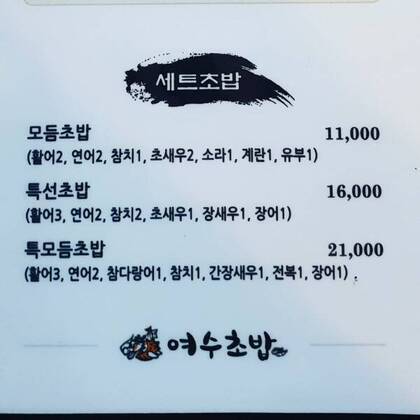 세트초밥
모듬초밥 11,000
(활어2, 연어2, 참치1, 초새우2, 소라1, 계란1, 유부1)
특선초밥 16,000
(활어3, 연어2, 참치2, 초새우1, 장새우1, 장어1)
특모듬초밥 21,000
(활어3, 연어2, 참다랑어1, 참치1, 간장새우1, 전복1, 장어1)
여수초밥